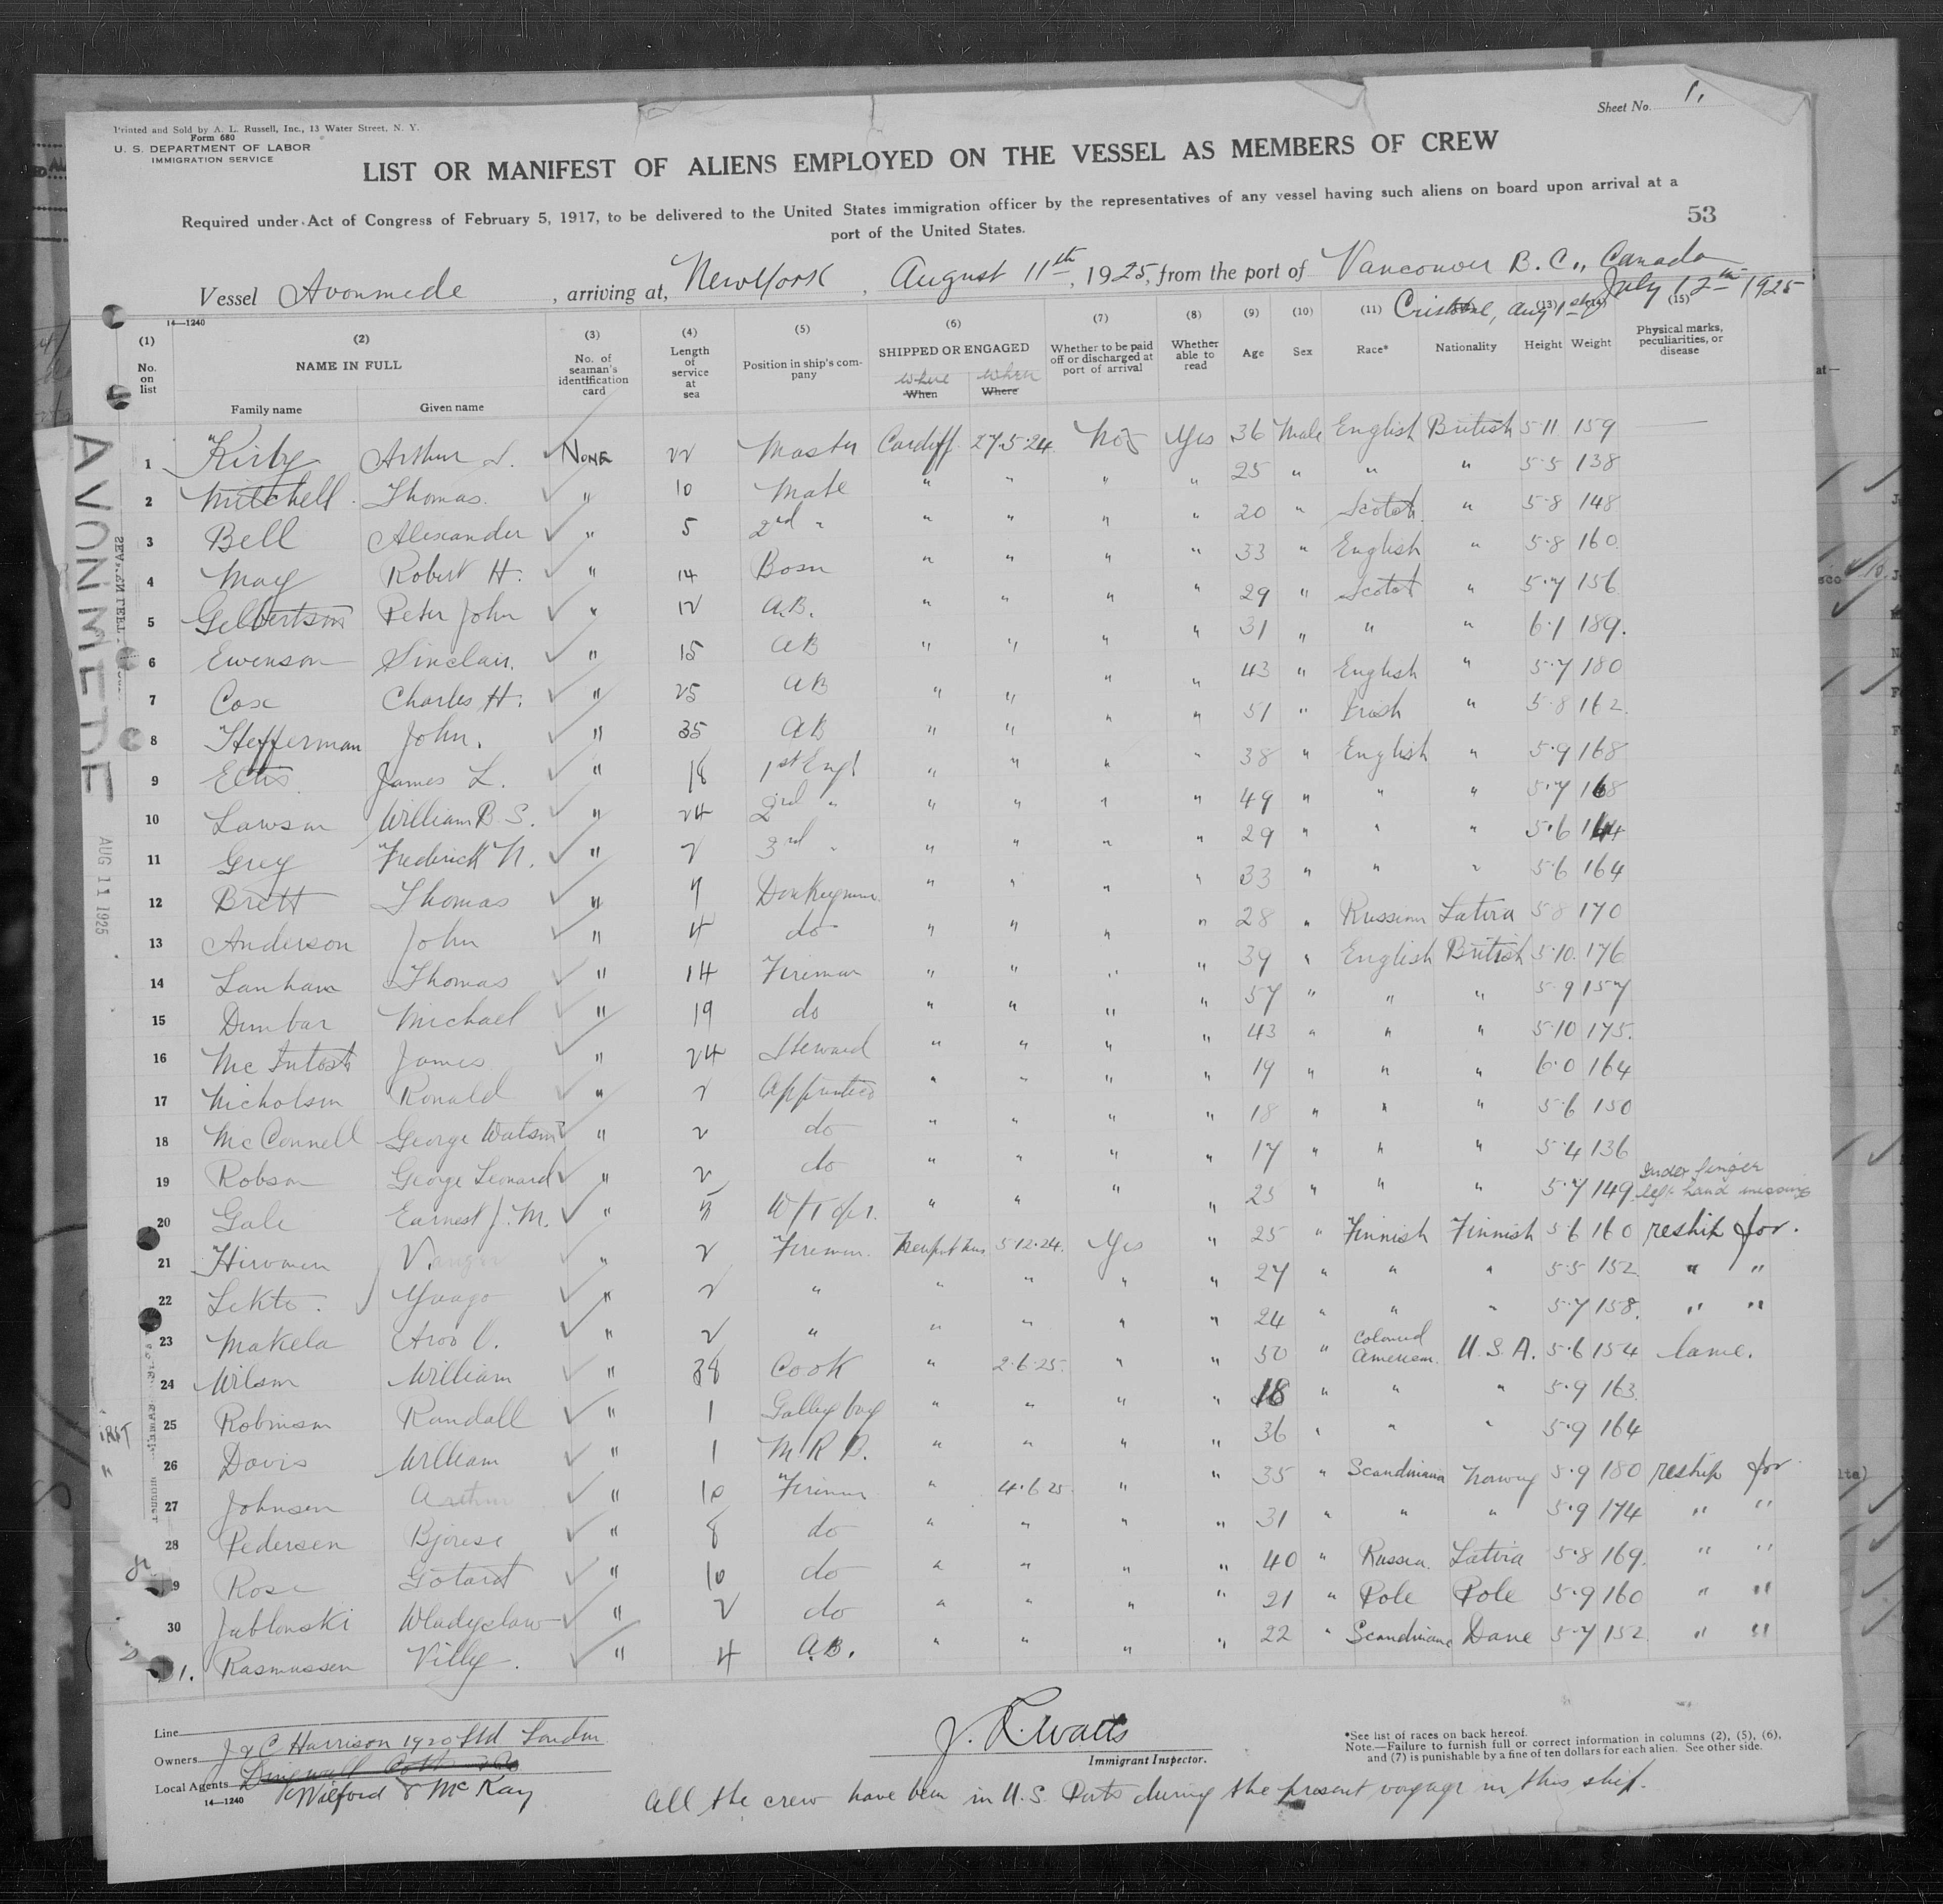 Sheet No. 1,
Printed and Sold by A. L. Russell, Inc., 13 Water Street, N. Y.
Form 680
U. S. DEPARTMENT OF LABOR
IMMIGRATION SERVICE
LIST OR MANIFEST OF ALIENS EMPLOYED ON THE VESSEL AS MEMBERS OF CREW
Required under Act of Congress of February 5, 1917, to be delivered to the United States immigration officer by the representatives of any vessel having such aliens on board upon arrival at a
port of the United States.
53
Vessel Avonmede, arriving at, New York, August 11th, 1925, from the port of Vancouver B. C., Canada
July 12th 1925
14—1240
(1) (2) (3) (4) (5) (6) (7) (8) (9) (10) (11) (13) (15)
No. on list NAME IN FULL Family name Given name No. of seaman's identification card Length of service at sea Position in ship's company SHIPPED OR ENGAGED where When when Where Whether to be paid off or discharged at port of arrival Whether able to read Age Sex Race* Nationality Height Weight Physical marks, peculiarities, or disease
1 Kirby Arthur None 22 Master Cardiff 27.5.24 No Yes 36 Male English British 5-11 159 —
2 Mitchell Thomas " 10 Mate " " " " 25 " " " 5-5 138
3 Bell Alexander " 5 2nd " " " " " 20 " Scotch " 5-8 148
4 May Robert H. " 14 Bosn " " " " 33 " English " 5-8 160
5 Gilbertson Peter John " 12 A.B. " " " " 29 " Scotch " 5-7 156
6 Ewenson Sinclair " 15 AB " " " " 31 " " " 6-1 189.
7 Cox Charles H. " 25 AB " " " " 43 " English " 5-7 180
8 Hefferman John. " 35 AB " " " " 51 " Irish " 5-8 162
9 James L. " 18 1st Eng " " " " 38 " English " 5-9 168
10 Lawson William B. S. " 24 2nd " " " " " 49 " " " 5-7 168
11 Grey Frederick N. " 2 3rd " " " " " 29 " " " 5-6 164
12 Brett Thomas " 7 Donkeyman " " " " 33 " " " 5-6 164
13 Anderson John " 4 do " " " " 28 " Russian Latvia 5-8 170
14 Lanham Thomas " 14 Fireman " " " " 39 " English British 5-10 176
15 Dunbar Michael " 19 do " " " " 57 " " " 5-9 157
16 McIntosh James " 24 Steward " " " " 43 " " " 5-10 175.
17 Nicholson Ronald " 2 Apprentice " " " " 19 " " " 6-0 164
18 McConnell George Watson " 2 do " " " " 18 " " " 5-6 150
19 Robson George Leonard " 2 do " " " " 17 " " " 5-4 136
20 Gale Earnest J. M. " W/T opr. " " " " 25 " " " 5-7 149 Index finger left hand missing
21 Hirvonen " 2 Fireman 5.12.24 Yes " 25 " Finnish Finnish 5-6 160 reship for.
22 Lekto " 2 " " " " " 27 " " " 5-5 152 " "
23 Makela " 2 " " " " " 24 " " " 5-7 158. " "
24 Wilson William " 38 Cook " 2.6.25 " " 50 " Colored American U.S.A. 5-6 154 lame.
25 Robinson Randall " 1 Galley boy " " " " 18 " " " 5-9 163
26 Davis William " 1 M.R.B. " " " " 36 " " " 5-9 164
27 Johnsen Arthur " 10 Fireman " 4.6.25 " " 35 " Scandinavia Norway 5-9 180 reship for
28 Pedersen " 8 do " " " " 31 " " " 5-9 174 " "
29 Rose Gotard " 10 do " " " " 40 " Russia. Latvia 5-8 169. " "
30 Jablonski Wladyslaw " 2 do " " " " 21 " Pole Pole 5-9 160 " "
31. Rasmussen Villy " 4 A.B. " " " " 22 " Scandinavia Dane 5-7 152 " "
AVONMEDE
AUG 11 1925
Line
Owners J & C Harrison 1920 Ltd London
Local Agents Wilford & McKay
14—1240
J. R. Watts
Immigrant Inspector.
*See list of races on back hereof.
Note.—Failure to furnish full or correct information in columns (2), (5), (6),
and (7) is punishable by a fine of ten dollars for each alien. See other side.
All the crew have been in U.S. Ports during the present voyage in this ship.